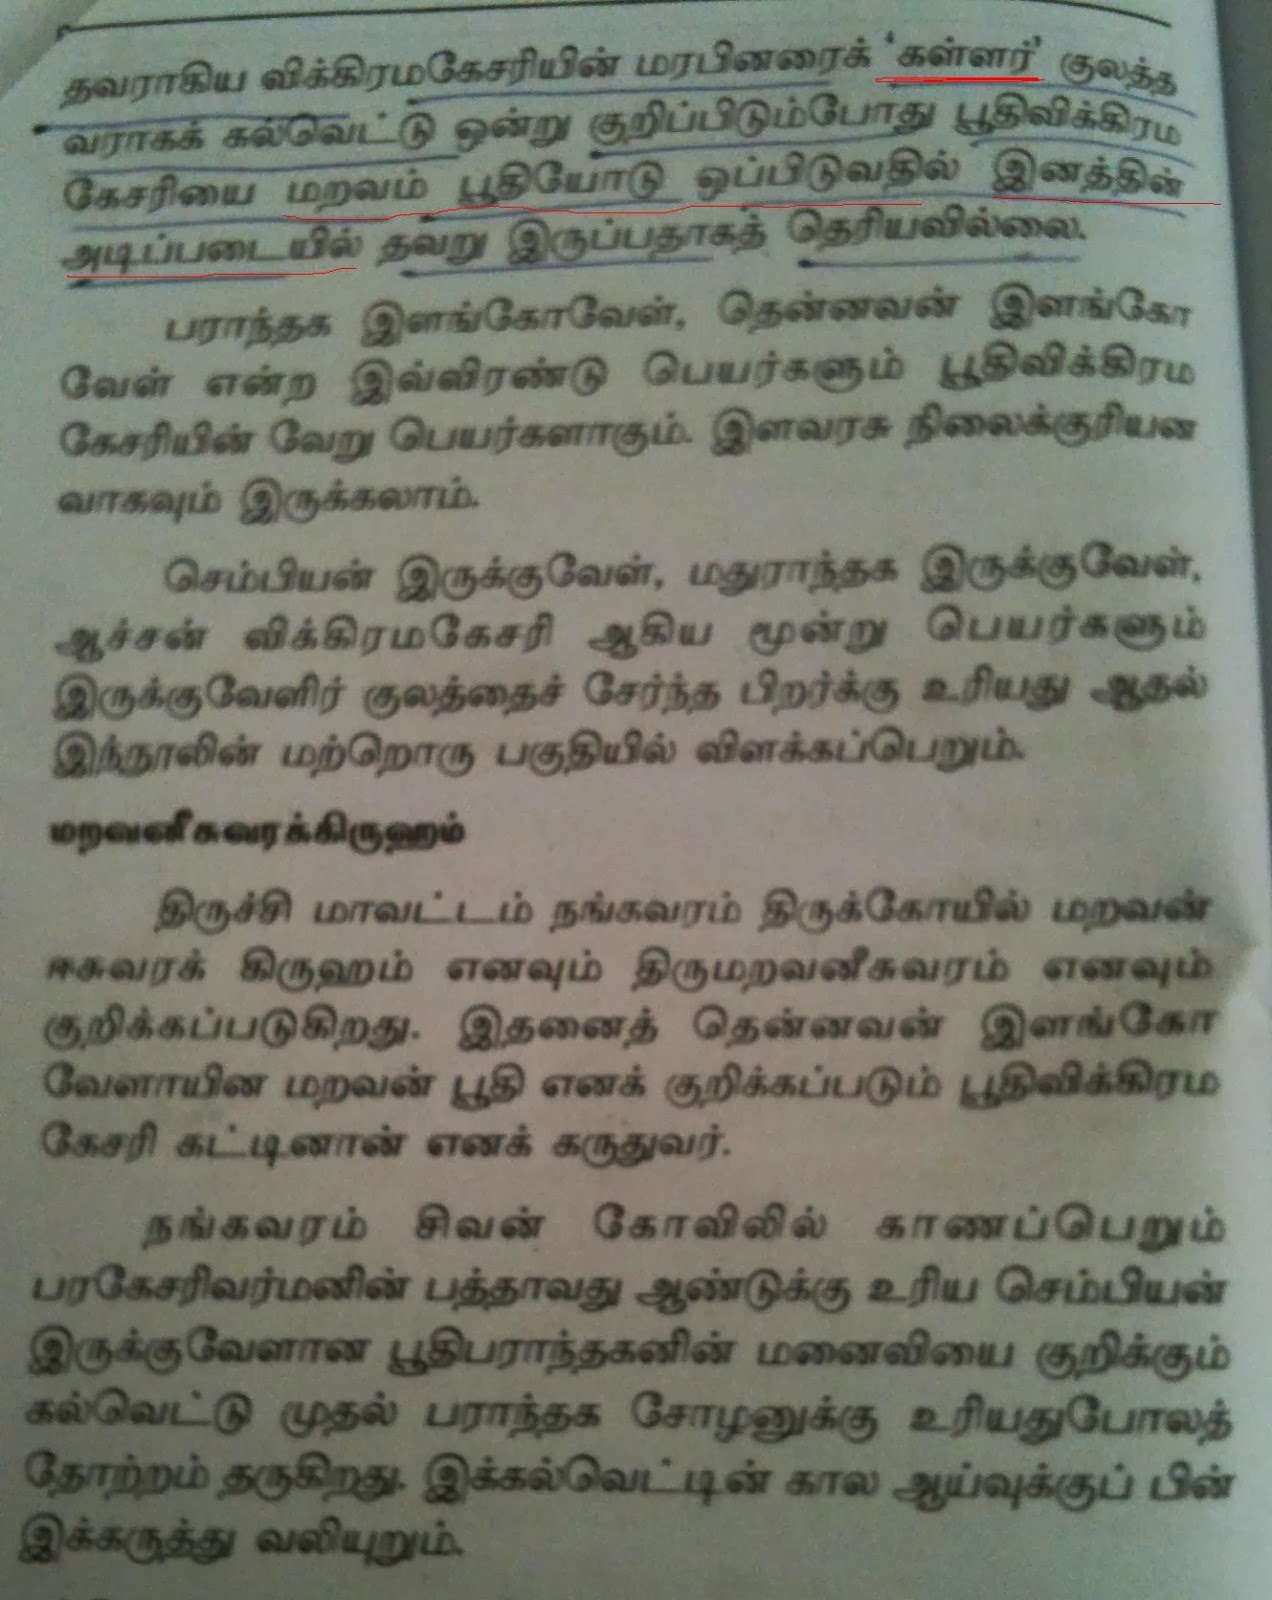 தவராகிய விக்கிரமகேசரியின் மரபினரைக் 'கள்ளர்' குலத்த
வராகக் கல்வெட்டு ஒன்று குறிப்பிடும்போது பூதிவிக்கிரம
கேசரியை மறவம் பூதியோடு ஒப்பிடுவதில் இனத்தின்
அடிப்படையில் தவறு இருப்பதாகத் தெரியவில்லை.
பராந்தக இளங்கோவேள், தென்னவன் இளங்கோ
வேள் என்ற இவ்விரண்டு பெயர்களும் பூதிவிக்கிரம
கேசரியின் வேறு பெயர்களாகும். இளவரசு நிலைக்குரியன
வாகவும் இருக்கலாம்.
செம்பியன் இருக்குவேள், மதுராந்தக இருக்குவேள்,
ஆச்சன் விக்கிரமகேசரி ஆகிய மூன்று பெயர்களும்
இருக்குவேளிர் குலத்தைச் சேர்ந்த பிறர்க்கு உரியது ஆதல்
இந்நூலின் மற்றொரு பகுதியில் விளக்கப்பெறும்.
மறவனீசுவரக்கிருஹம்
திருச்சி மாவட்டம் நங்கவரம் திருக்கோயில் மறவன்
ஈசுவரக் கிருஹம் எனவும் திருமறவனீசுவரம் எனவும்
குறிக்கப்படுகிறது. இதனைத் தென்னவன் இளங்கோ
வேளாயின மறவன் பூதி எனக் குறிக்கப்படும் பூதிவிக்கிரம
கேசரி கட்டினான் எனக் கருதுவர்.
நங்கவரம் சிவன் கோவிலில் காணப்பெறும்
பரகேசரிவர்மனின் பத்தாவது ஆண்டுக்கு உரிய செம்பியன்
இருக்குவேளான பூதிபராந்தகனின் மனைவியை குறிக்கும்
கல்வெட்டு முதல் பராந்தக சோழனுக்கு உரியதுபோலத்
தோற்றம் தருகிறது. இக்கல்வெட்டின் கால ஆய்வுக்குப் பின்
இக்கருத்து வலியுறும்.